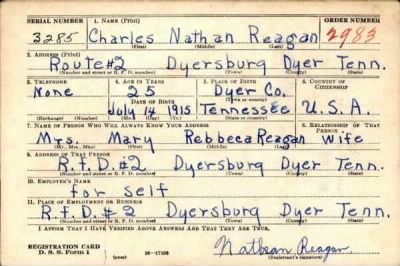 SERIAL NUMBER 1. NAME (Print) ORDER NUMBER
3285 Charles Nathan Reagan 2983
(First) (Middle) (Last)
2. ADDRESS (Print)
Route#2 Dyersburg Dyer Tenn.
(Number and street or R. F. D. number) (Town) (County) (State)
3. TELEPHONE 4. AGE IN YEARS 5. PLACE OF BIRTH 6. COUNTRY OF CITIZENSHIP
None 25 Dyer Co.
DATE OF BIRTH (Town or county)
July 16 1915 Tennessee U.S.A.
(Exchange) (Number) (Mo.) (Day) (Yr.) (State or country)
7. NAME OF PERSON WHO WILL ALWAYS KNOW YOUR ADDRESS 8. RELATIONSHIP OF THAT PERSON
Mrs. Mary Rebbeca Reagan wife
(Mr., Mrs., Miss) (First) (Middle) (Last)
9. ADDRESS OF THAT PERSON
R.f.D.#2 Dyersburg Dyer Tenn.
(Number and street or R. F. D. number) (Town) (County) (State)
10. EMPLOYER'S NAME
for self
11. PLACE OF EMPLOYMENT OR BUSINESS
R.f.D.#2 Dyersburg Dyer Tenn.
(Number and street or R. F. D. number) (Town) (County) (State)
I AFFIRM THAT I HAVE VERIFIED ABOVE ANSWERS AND THAT THEY ARE TRUE.
REGISTRATION CARD
D. S. S. Form 1 (over) Nathan Reagan
(Registrant's signature)